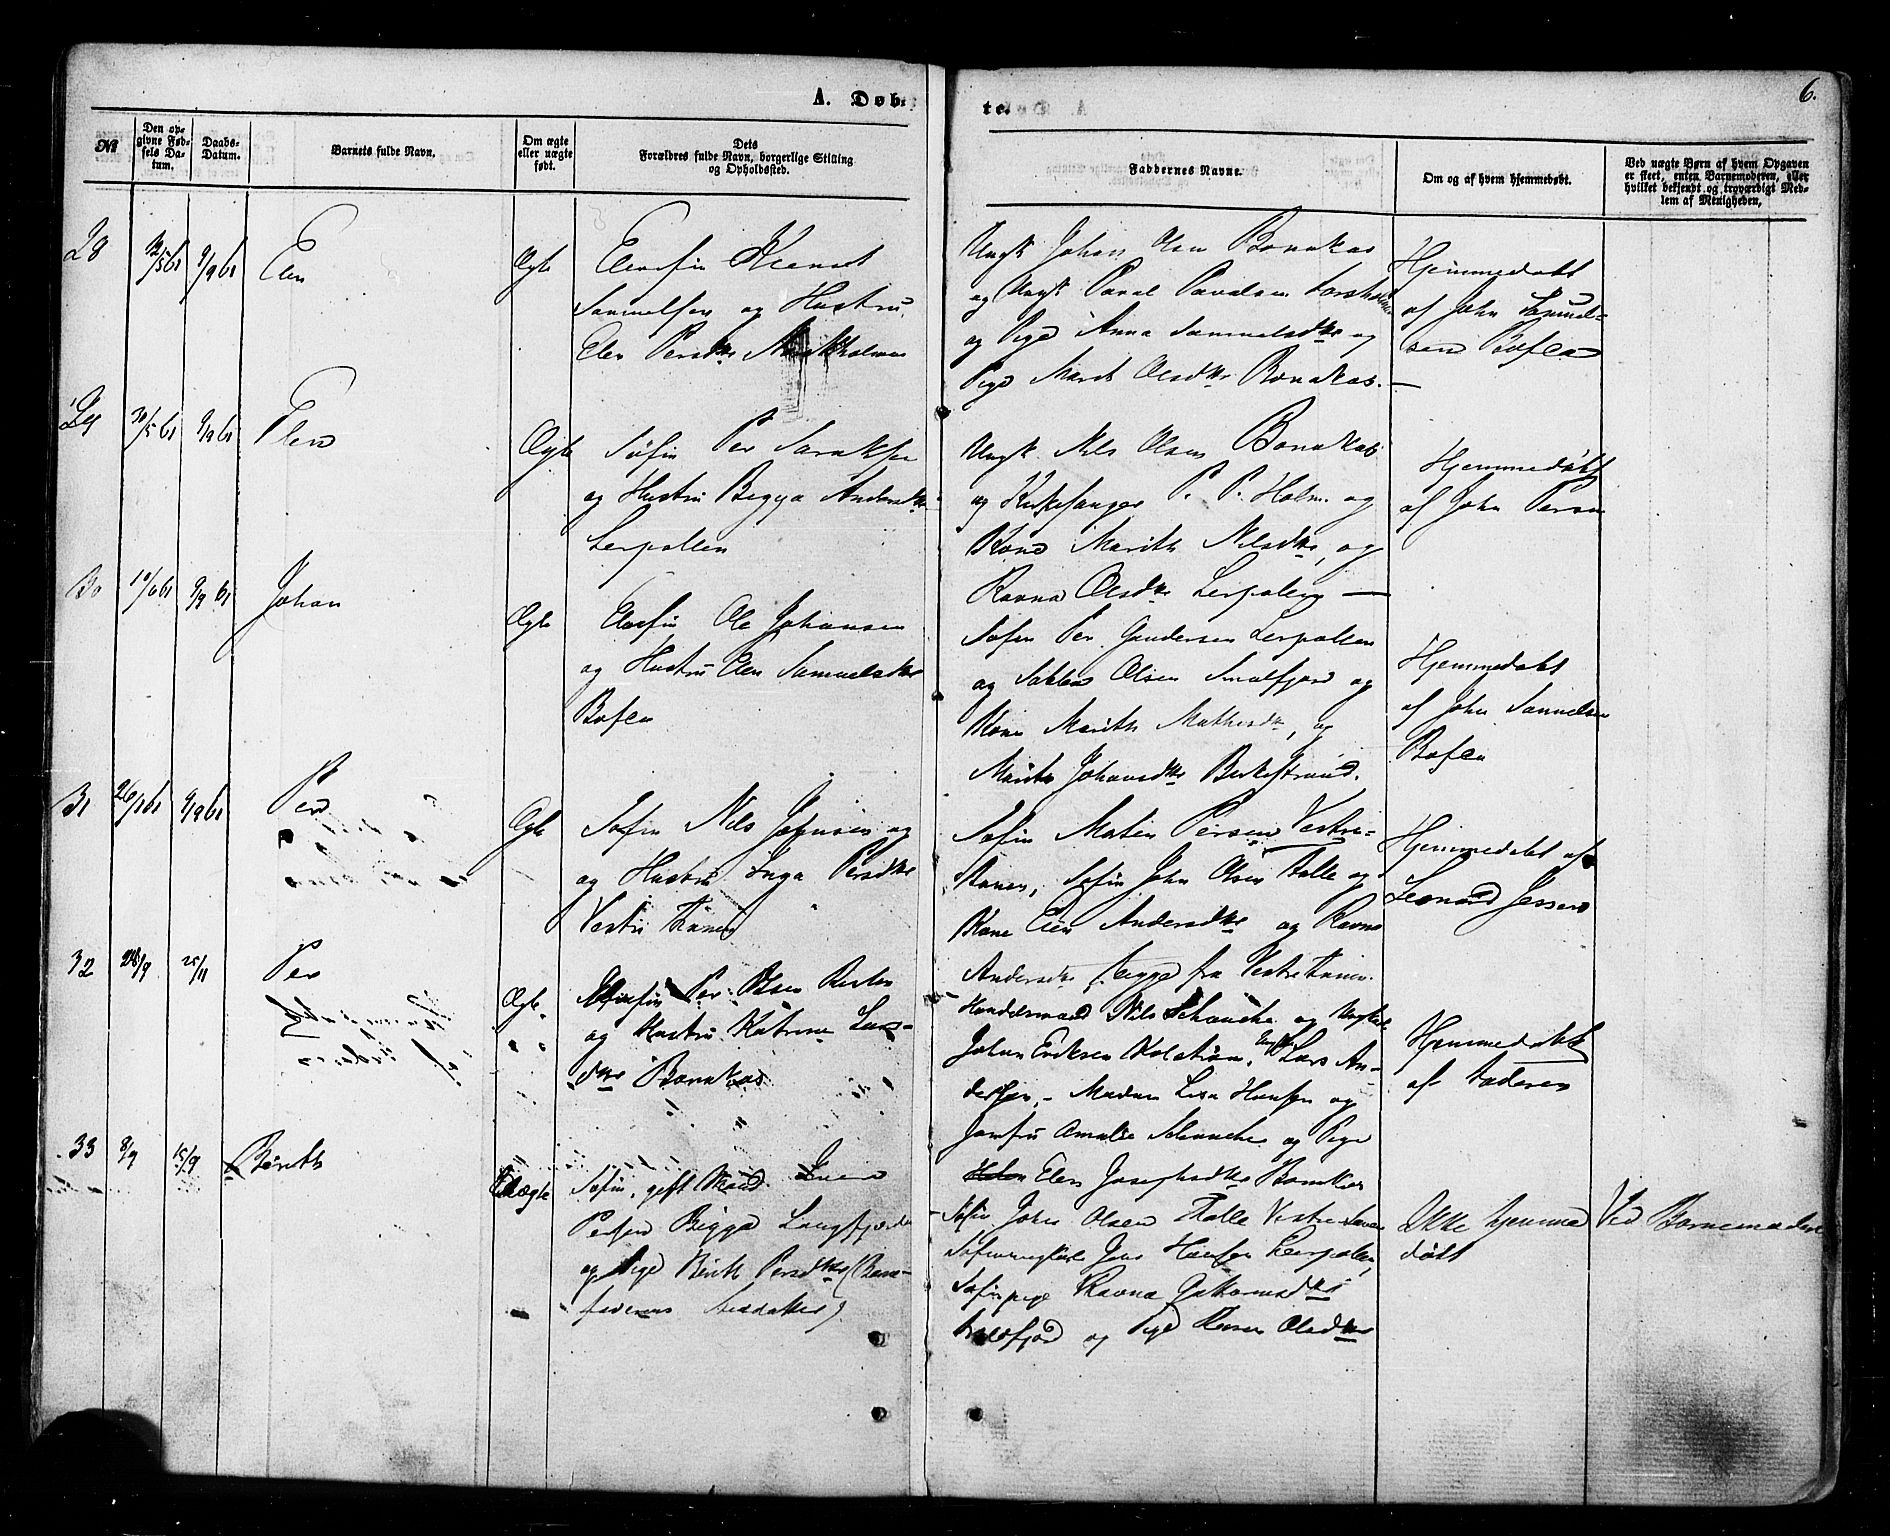 A. Døb-
te.
6.
Nr
Den op-
givne Fød-
sels Da-
tum.
Daabs-
Datum.
Barnets fulde Navn.
Om ægte
eller uægte
født.
Dets
Forældres fulde Navn, borgerlige Stilling
og Opholdssted.
Faddernes Navne.
Om og af hvem hjemmedøbt.
Ved uægte Børn af hvem Opgaven
er skeet, enten Barnemoderen, eller
hvilket bekjendt og troværdigt Med-
lem af Menigheden.
28
9/9 61
Elen
Ægte
Samuelsen og Hustru
Elen Persdtr
Ungk Johan Olsen Bonakas
og Ungk Paval Pavalsen
og Pige Anna Samuelsdtr og
Pige Marit Olsdtr Bonakas.
Hjemmedøbt
af John Samuel-
sen Bofca
29
30/5 61
9/9 61
Elen
Ægte
Søfin Per
og Hustru Bigga Andersdtr
Lerpollen
Ungk. Nils Olsen Bonakas
og Kirkesanger P. P. Holm og
Kone Marith Nilsdtr, og
Ravna Olsdtr Lerpollen
Hjemmedøbt
af John Persen
30
10/6 61
9/9 61
Johan
Ægte
Elvefin Ole Johansen
og Hustru Elen Samuelsdtr
Bofca
Søfin Per Gundersen Lerpollen
og Olsen Smalfjord og
Kone Marith Mathisdtr, og
Marith Johansdtr Birkestrand.
Hjemmedøbt
af John Samuelsen
Bofca
31
9/9 61
Per
Ægte
Søfin Nils Johnsen og
og Hustru Inga Persdtr
Vestre Tanen
Søfin Matis Persen Vestre-
Tanen, Søfin John Olsen Talle og
Kone Elen Andersdtr og Ravna
Andersdtr Bigga fra Vestre Tanen.
Hjemmedøbt af
Leonard Jessen
32
Per
Ægte
Elvefin Per Olsen
og Hustru Katrine Lars-
dtr Bonakas
Handelsmand Nils Schanche og Ungkarl
Johan Eriksen Kolstrøm, Ungk Lars An-
dersen, Madam Lisa Hansen og
Jomfru Amalie Schanche og Pige
Elen Josephsdtr Bonakas
Hjemmedøbt
af Faderen
33
8/9
15/9
Berith
Uægte
Søfin, gift Mand
Pedersen Bigga Langfjorden
og Pige Berit Persdtr (Barne-
faderens
Søfin John Olsen Talle Vestre Tanen
Søfinungkarl Jons Hansen Lerpollen,
Søfinpige Ravna
og Pige Karen Olsdtr
Ikke hjemme
døbt
Ved Barnemoderen